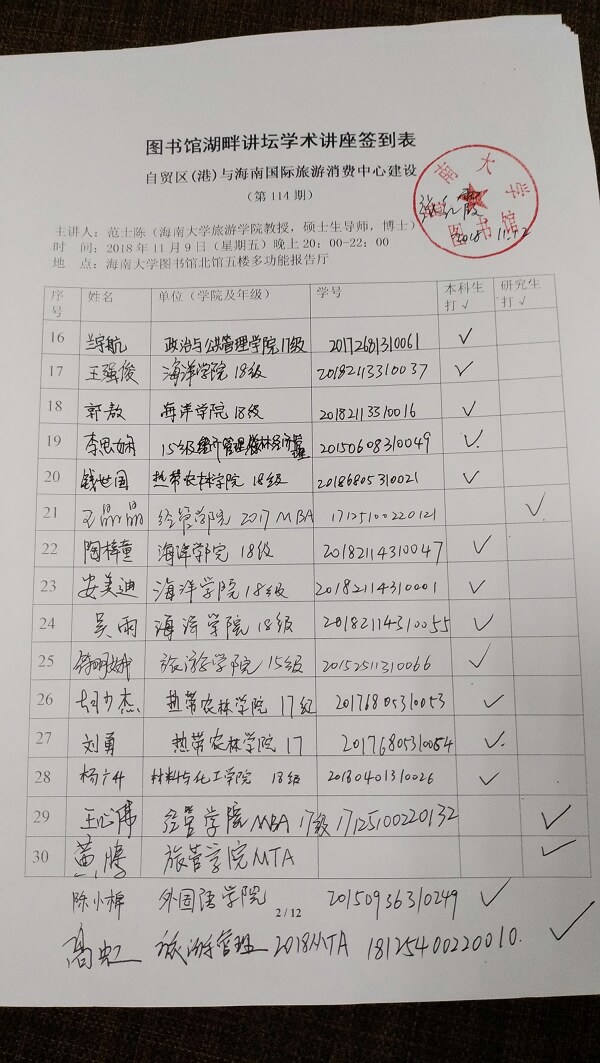 图书馆湖畔讲坛学术讲座签到表
自贸区(港)与海南国际旅游消费中心建设
(第 114 期)
南大学
图书馆
2018 11.12
主讲人：范士陈（海南大学旅游学院教授，硕士生导师，博士）
时 间：2018 年 11 月 9 日（星期五）晚上 20：00-22：00
地 点：海南大学图书馆北馆五楼多功能报告厅
序号 姓名 单位（学院及年级） 学号 本科生打√ 研究生打√
16 兰宇航 政治与公共管理学院17级 20172681310061 ✓
17 王强俊 海洋学院 18级 20182113310037 ✓
18 郭敖 海洋学院 18级 20182113310016 ✓
19 李思娴 15级 20150608310049 ✓
20 钱世国 热带农林学院 18级 20186805310021 ✓
21 王晶晶 经管学院 2017 MBA 17125100220121 ✓
22 陶梓童 海洋学院 18级 20182114310047 ✓
23 安美迪 海洋学院 18级 20182114310001 ✓
24 吴雨 海洋学院 18级 20182114310055 ✓
25 旅游学院 15级 20152511310066 ✓
26 胡少杰 热带农林学院 17级 20176805310053 ✓
27 刘勇 热带农林学院 17 20176805310054 ✓
28 杨广升 材料与化工学院 18级 20180401310026 ✓
29 王心伟 经管学院 MBA 17级 17125100220132 ✓
30 黄腾 旅管学院 MTA ✓
陈小棉 外国语学院 20150936310249 ✓
2 / 12
高虹 旅游管理 2018MTA 18125400220010. ✓